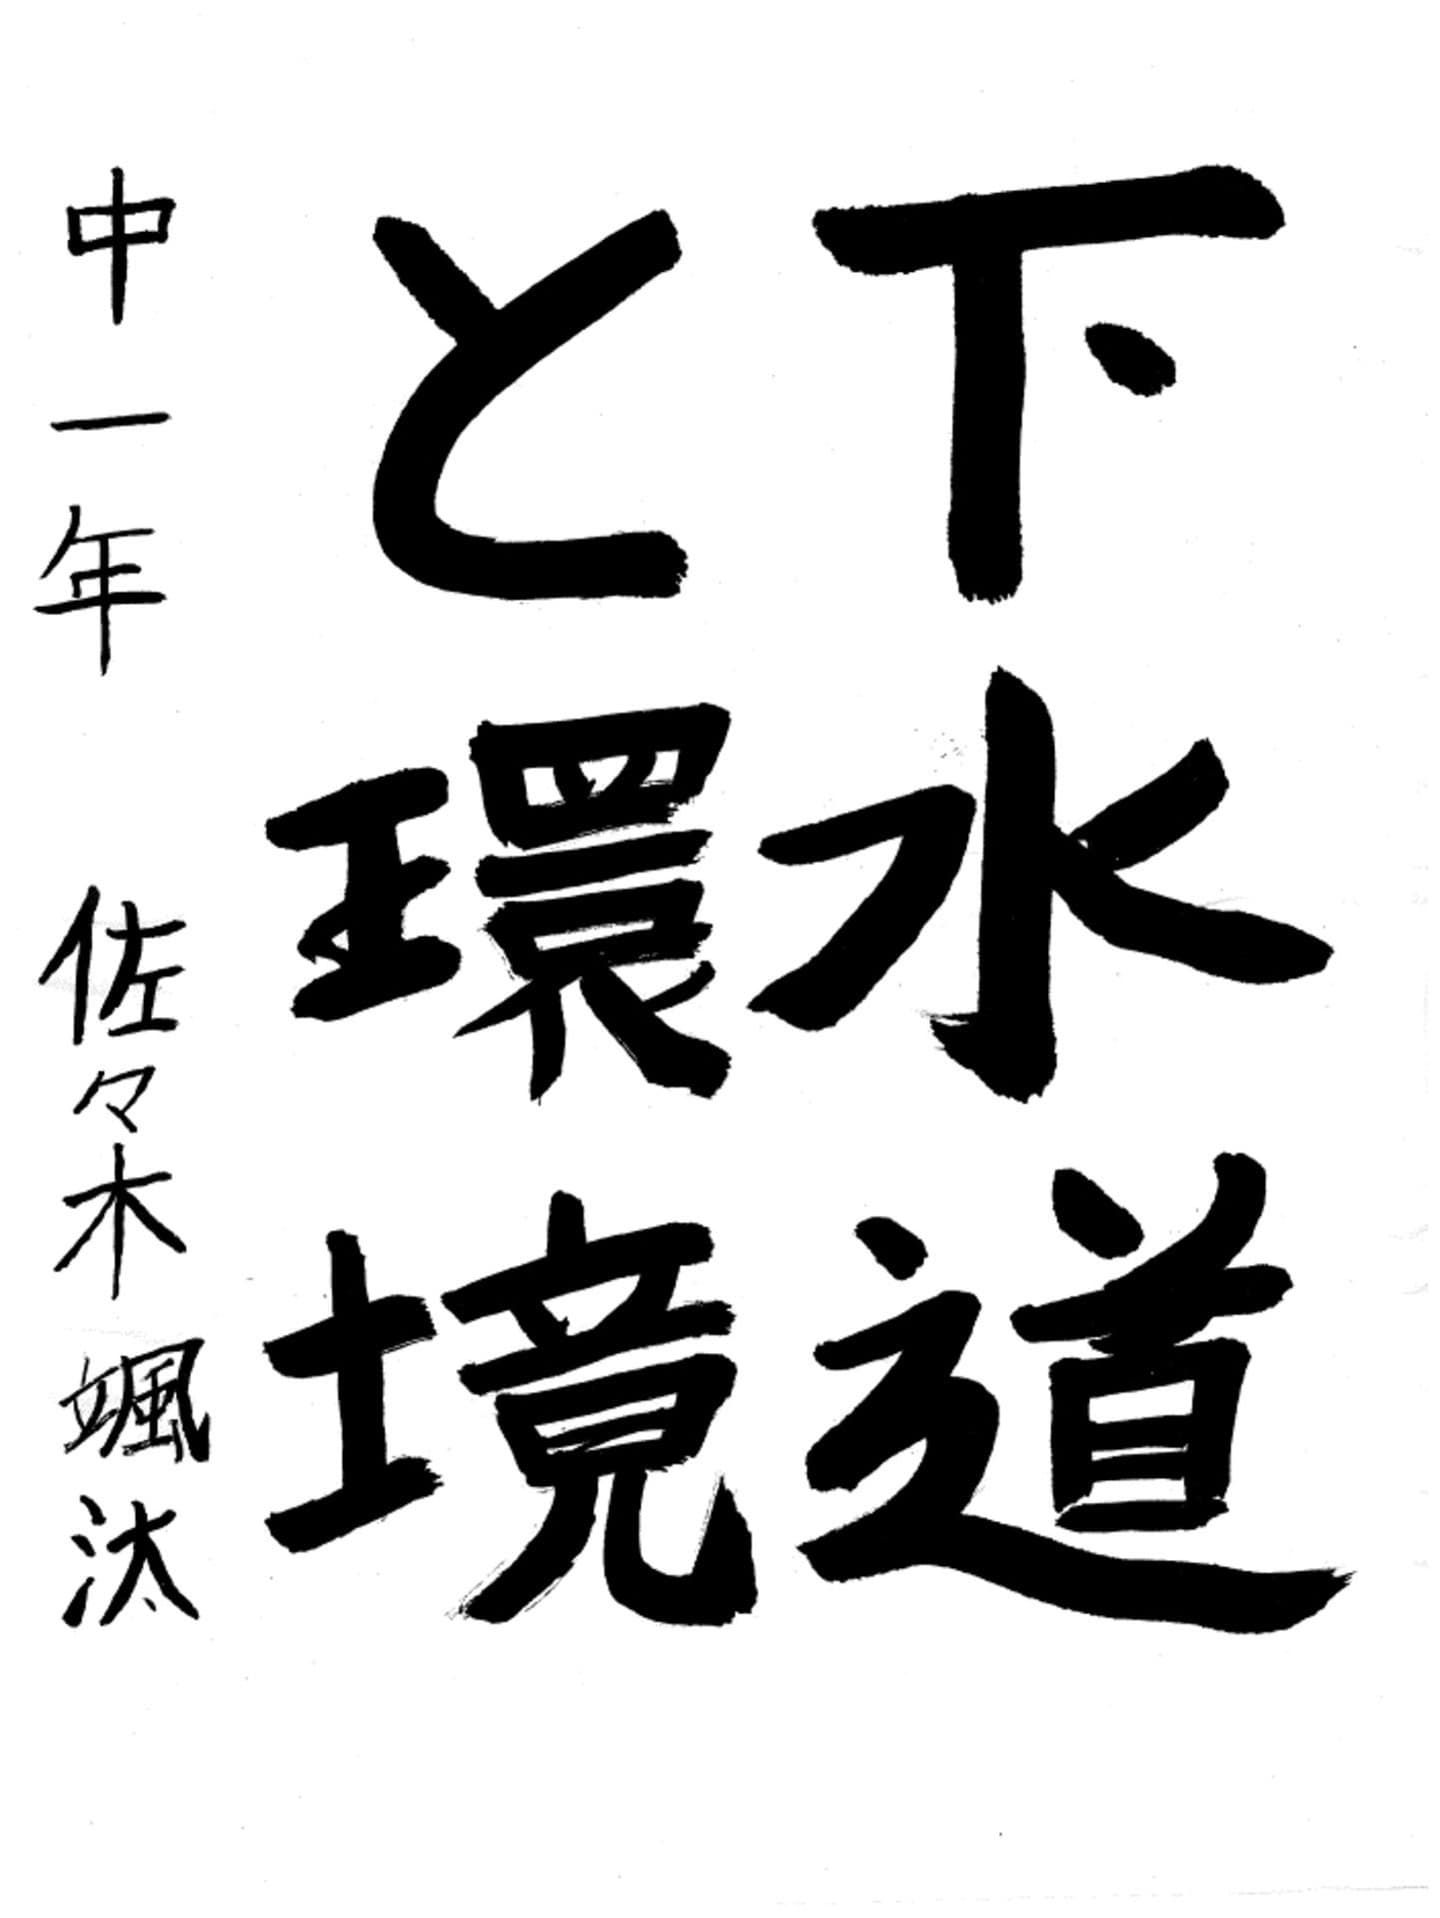 下水道
と環境
中一年 佐々木颯汰